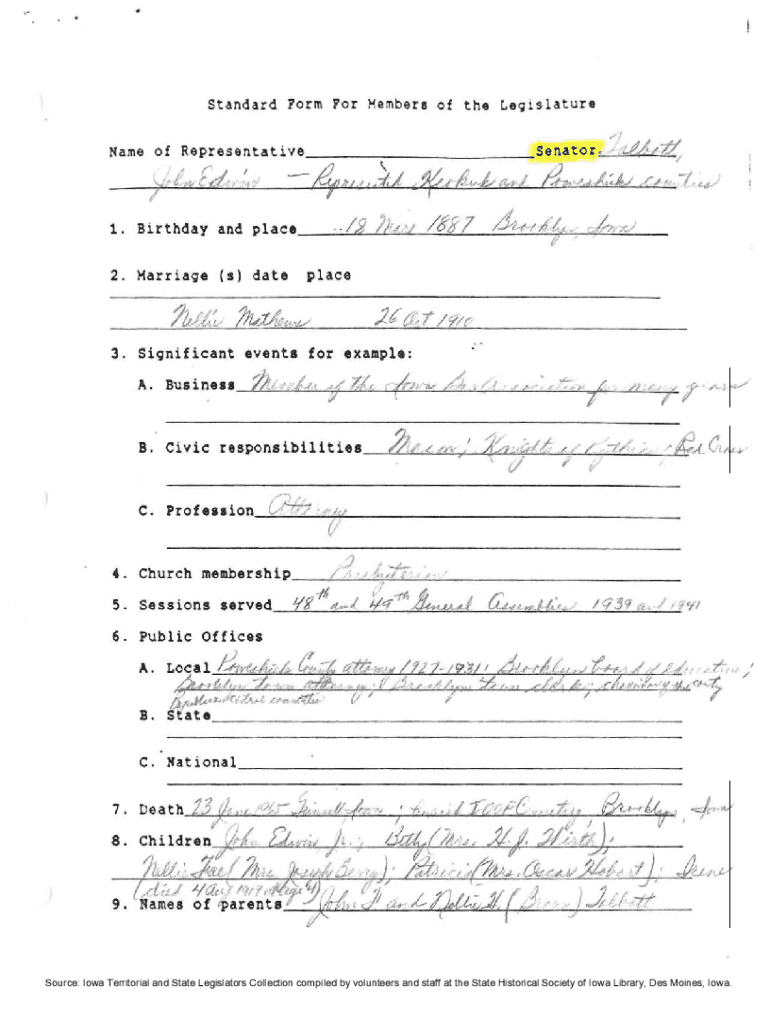 Standard Form For Members of the Legislature
Name of Representative Senator Talbott,
John Edwin — Represented Keokuk and Poweshiek counties
1. Birthday and place 18 1887 Brooklyn, Iowa
2. Marriage (s) date place
Nellie Mathews 26 Oct 1910
3. Significant events for example:
A. Business Member of the Iowa Bar Association for many years
B. Civic responsibilities Mason; Knights of Pythias; Red Cross
C. Profession Attorney
4. Church membership Presbyterian
5. Sessions served 48th and 49th General Assemblies 1939 and 1941
6. Public Offices
A. Local Poweshiek County attorney 1927-1931; Brooklyn board of education;
Brooklyn town attorney; Brooklyn town clerk; chairman of the county
republican central committee
B. State
C. National
7. Death 23 June 1965 Grinnell, Iowa; buried IOOF Cemetery, Brooklyn, Iowa
8. Children John Edwin Jr.; Betty (Mrs. H. J. Wirth);
Nellie (Mrs. Joseph Berry); Patricia (Mrs. Oscar Hobart); Irene
(died 4 Aug 1919 age
9. Names of parents John H and Nellie H. (Brown) Talbott
Source: Iowa Territorial and State Legislators Collection compiled by volunteers and staff at the State Historical Society of Iowa Library, Des Moines, Iowa.